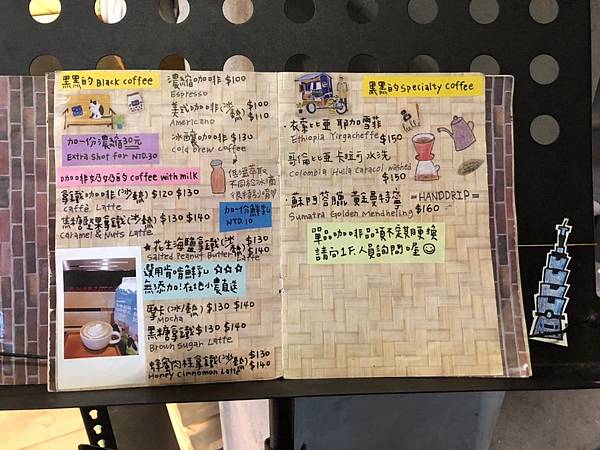 黑黑的 Black coffee
濃縮咖啡 $100
Espresso
美式咖啡(冰 $100
熱 $110
Americano
冰釀咖啡 $130
cold brew coffee
加一份濃縮30元
Extra shot for NTD.30
低溫萃取
不同於冰滴
很特別唷
咖啡奶奶的 coffee with milk
拿鐵咖啡(冰/熱) $120 $130
Caffè Latte
加一份鮮乳
NTD.10
焦糖堅果拿鐵(冰/熱) $130 $140
Caramel & Nuts Latte
★花生海鹽拿鐵(冰 $130
熱 $140
Salted Peanut Butter Latte
選用 鮮乳 ☆☆☆
無添加!在地小農直送
摩卡(冰/熱) $130 $140
Mocha
黑糖拿鐵 $130 $140
Brown Sugar Latte
蜂蜜肉桂拿鐵(冰 $130
熱) $140
Honey Cinnomon Latte
黑黑的 Specialty coffee
衣索比亞 耶加雪菲
Ethiopia Yirgacheffe $150
哥倫比亞 卡拉可 水洗
Colombia Huila Caracol washed
$150
= HANDDRIP =
蘇門答臘 黃金曼特寧
Sumatra Golden Mendheling $160
單品咖啡品項不定期更換
請向1F.人員詢問喔☺